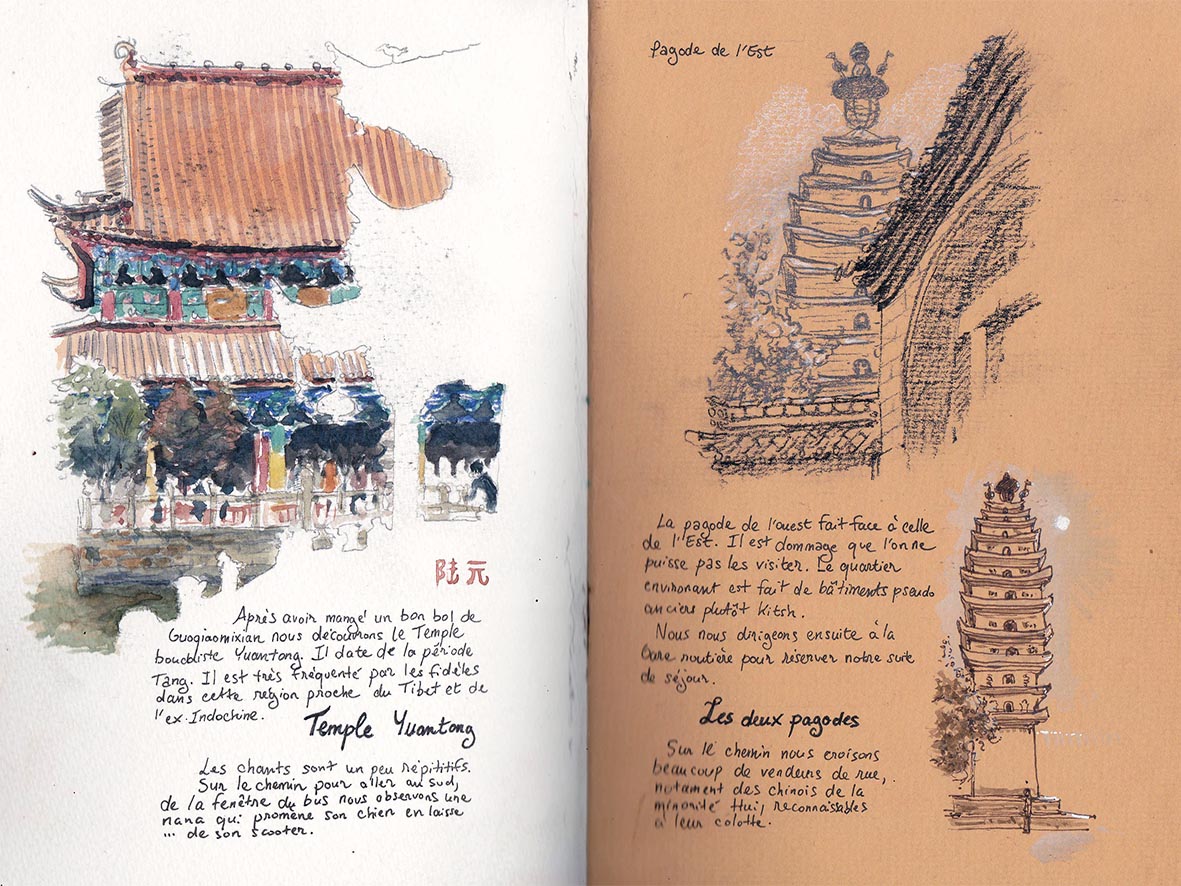 陆元
Après avoir mangé un bon bol de
Guoqiaomixian nous découvrons le Temple
bouddiste Yuantong. Il date de la période
Tang. Il est très fréquenté par les fidèles
dans cette région proche du Tibet et de
l'ex-Indochine.
Temple Yuantong
Les chants sont un peu répititifs.
Sur le chemin pour aller au sud,
de la fenêtre du bus nous observons une
nana qui promène son chien en laisse
... de son scooter.
Pagode de l'Est
La pagode de l'ouest fait face à celle
de l'Est. Il est dommage que l'on ne
puisse pas les visiter. Le quartier
environant est fait de bâtiments pseudo
anciens plutôt Kitsh.
Nous nous dirigeons ensuite à la
Gare routière pour réserver notre suite
de séjour.
Les deux pagodes
Sur le chemin nous croisons
beaucoup de vendeurs de rue,
notament des chinois de la
minorité Hui, reconnaissables
à leur colotte.